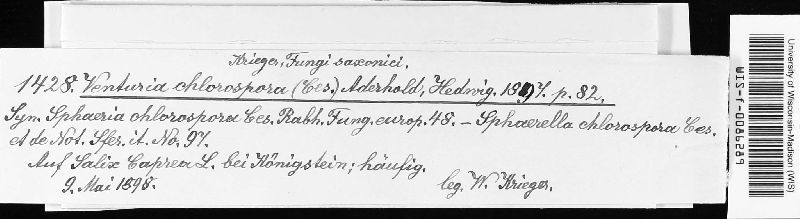 Krieger, Fungi saxonici.
1428. Venturia chlorospora (Ces.) Aderhold, Hedwig. 1897. p. 82.
Syn. Sphaeria chlorospora Ces. Rabh. Fung. europ. 48. – Sphaerella chlorospora Ces.
et de Not. Sfer. it. No. 97.
Auf Salix Caprea L. bei Königstein; häufig.
9. Mai 1898.
leg. W. Krieger.
University of Wisconsin-Madison (WIS)
WIS-f-0086289